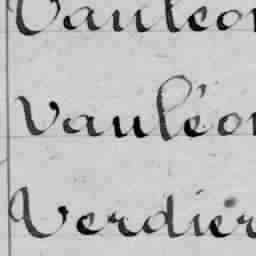 Vauléon
Vauléon
Verdier